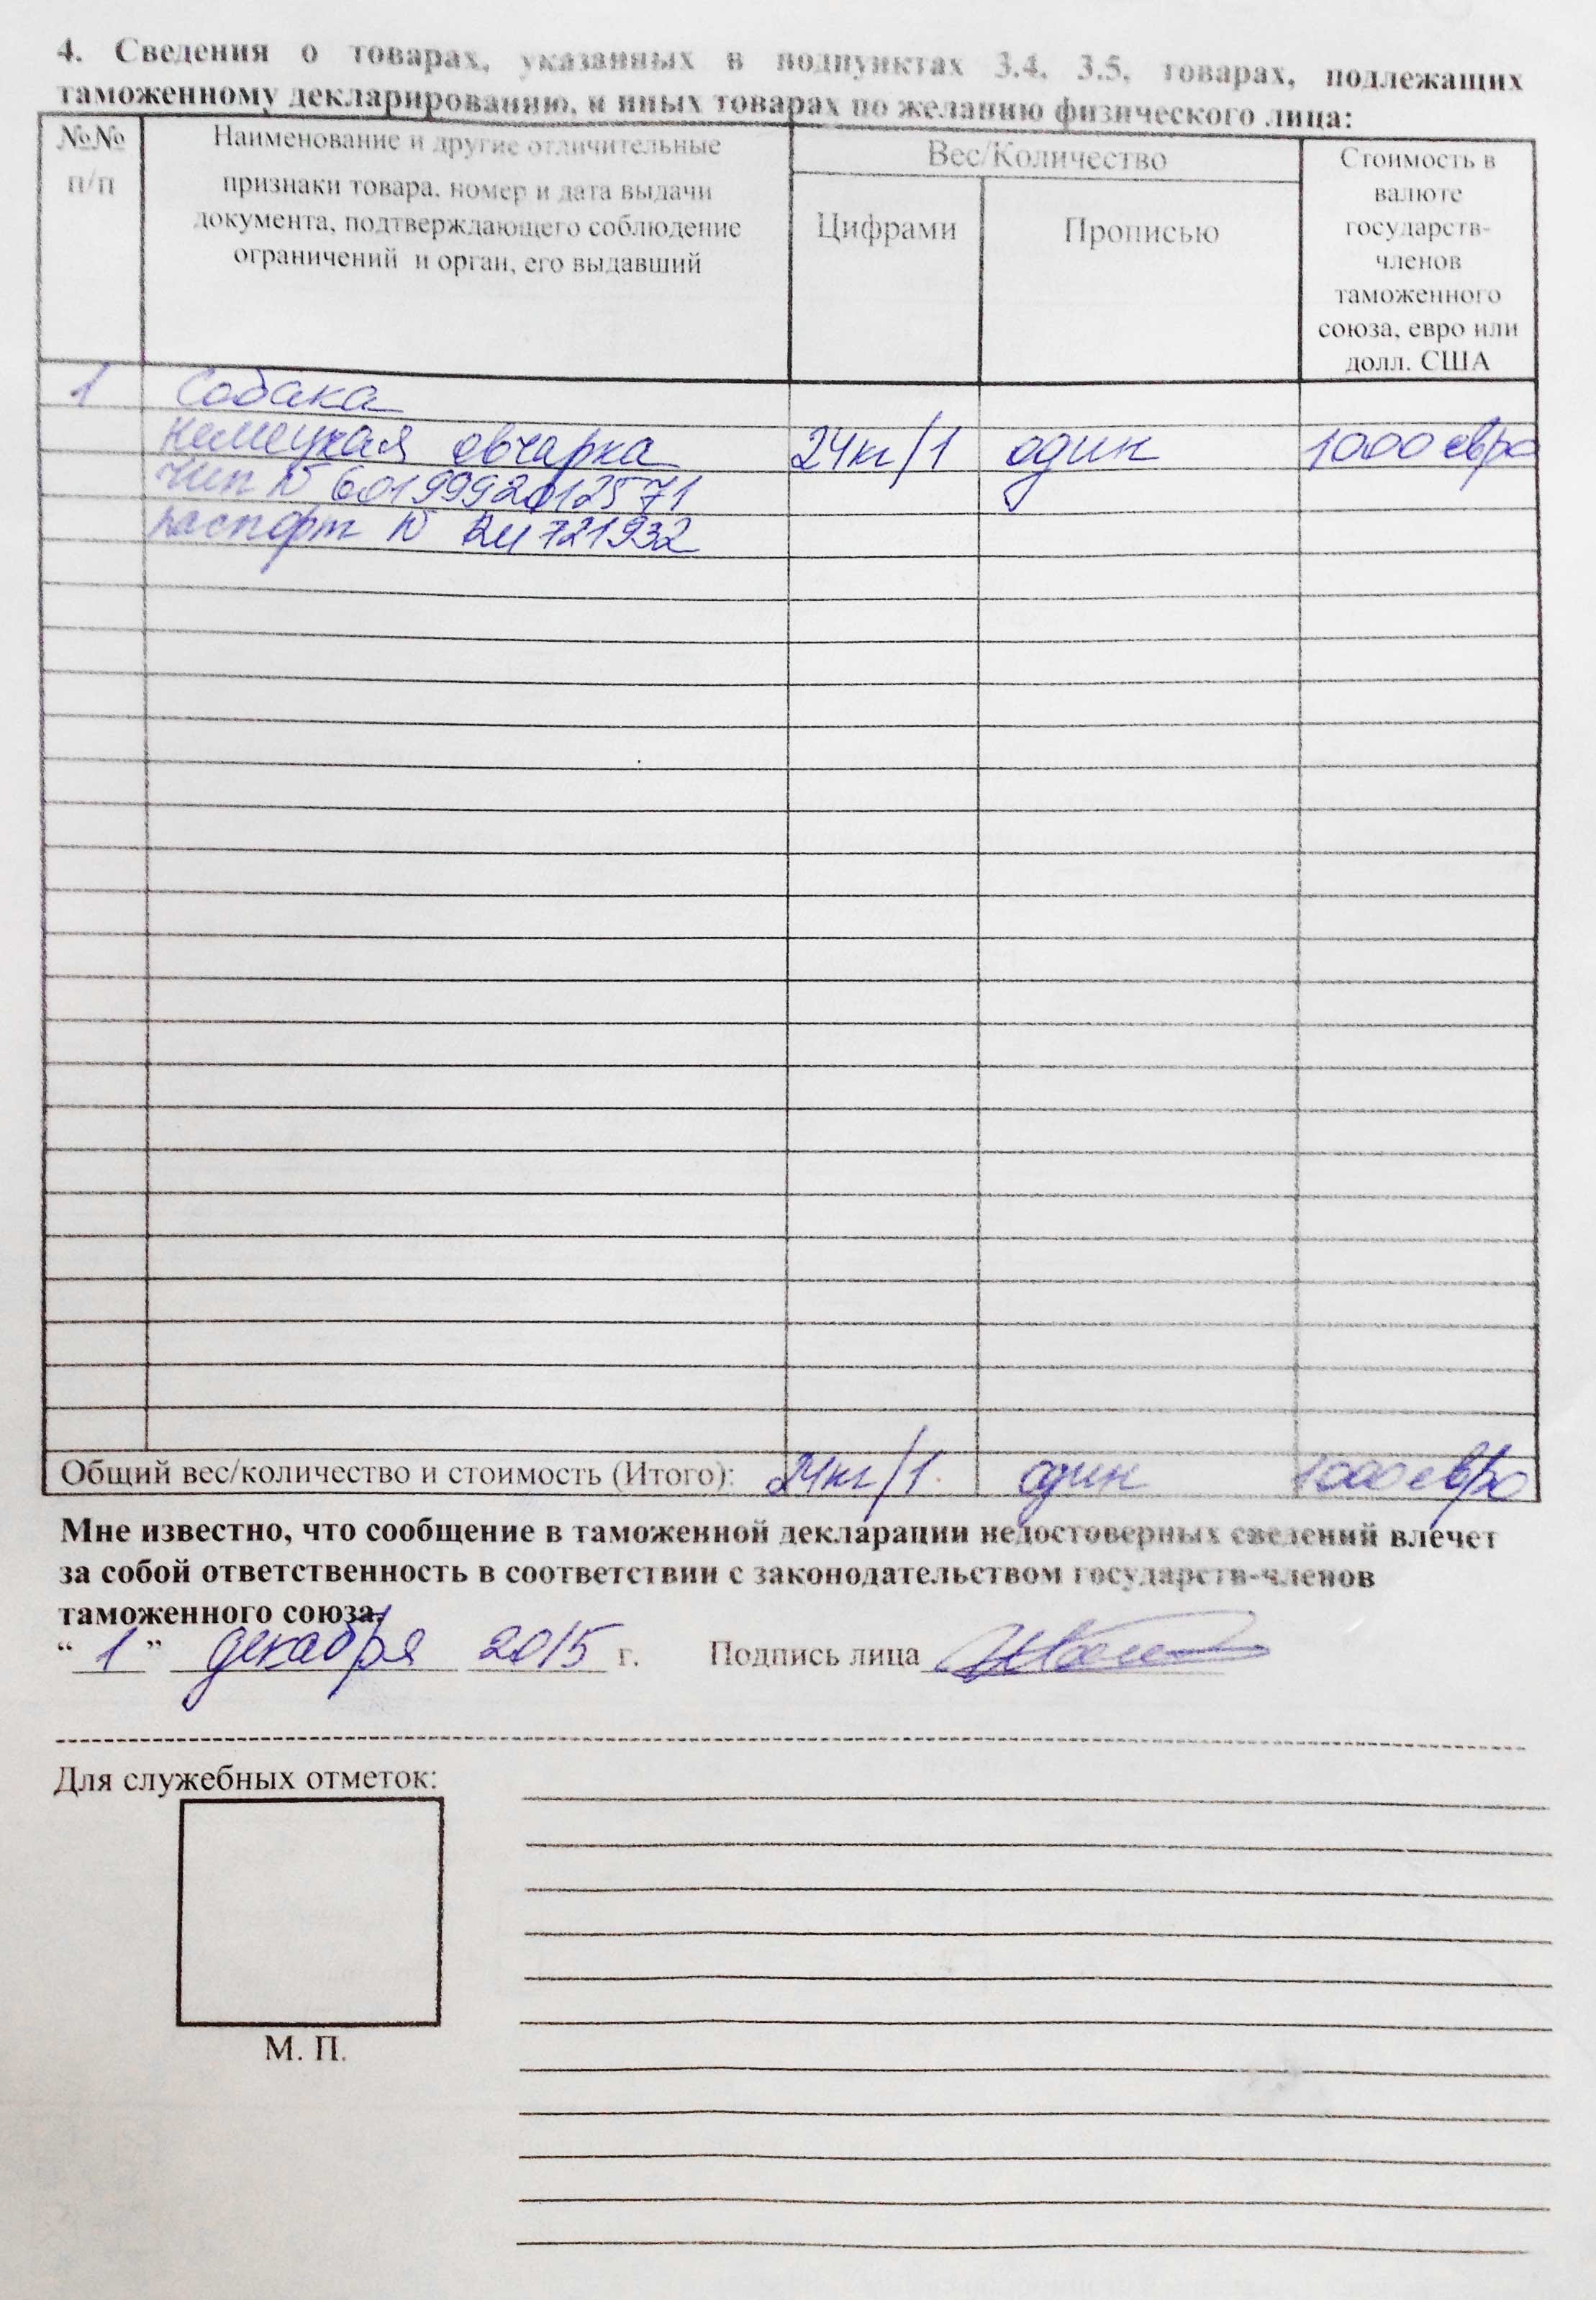 4. Сведения о товарах, указанных в подпунктах 3.4, 3.5, товарах, подлежащих
таможенному декларированию, и иных товарах по желанию физического лица:
№№
п/п
Наименование и другие отличительные
признаки товара, номер и дата выдачи
документа, подтверждающего соблюдение
ограничений и орган, его выдавший
Вес/Количество
Цифрами
Прописью
Стоимость в
валюте
государств-
членов
таможенного
союза, евро или
долл. США
1 Собака
немецкая овчарка 24кг/1 один 1000 евро
чип N 6019992012571
паспорт N 721932
Общий вес/количество и стоимость (Итого): 24кг/1 один 1000 евро
Мне известно, что сообщение в таможенной декларации недостоверных сведений влечет
за собой ответственность в соответствии с законодательством государств-членов
таможенного союза.
“ 1 ” декабря 2015 г. Подпись лица
Для служебных отметок:
М. П.